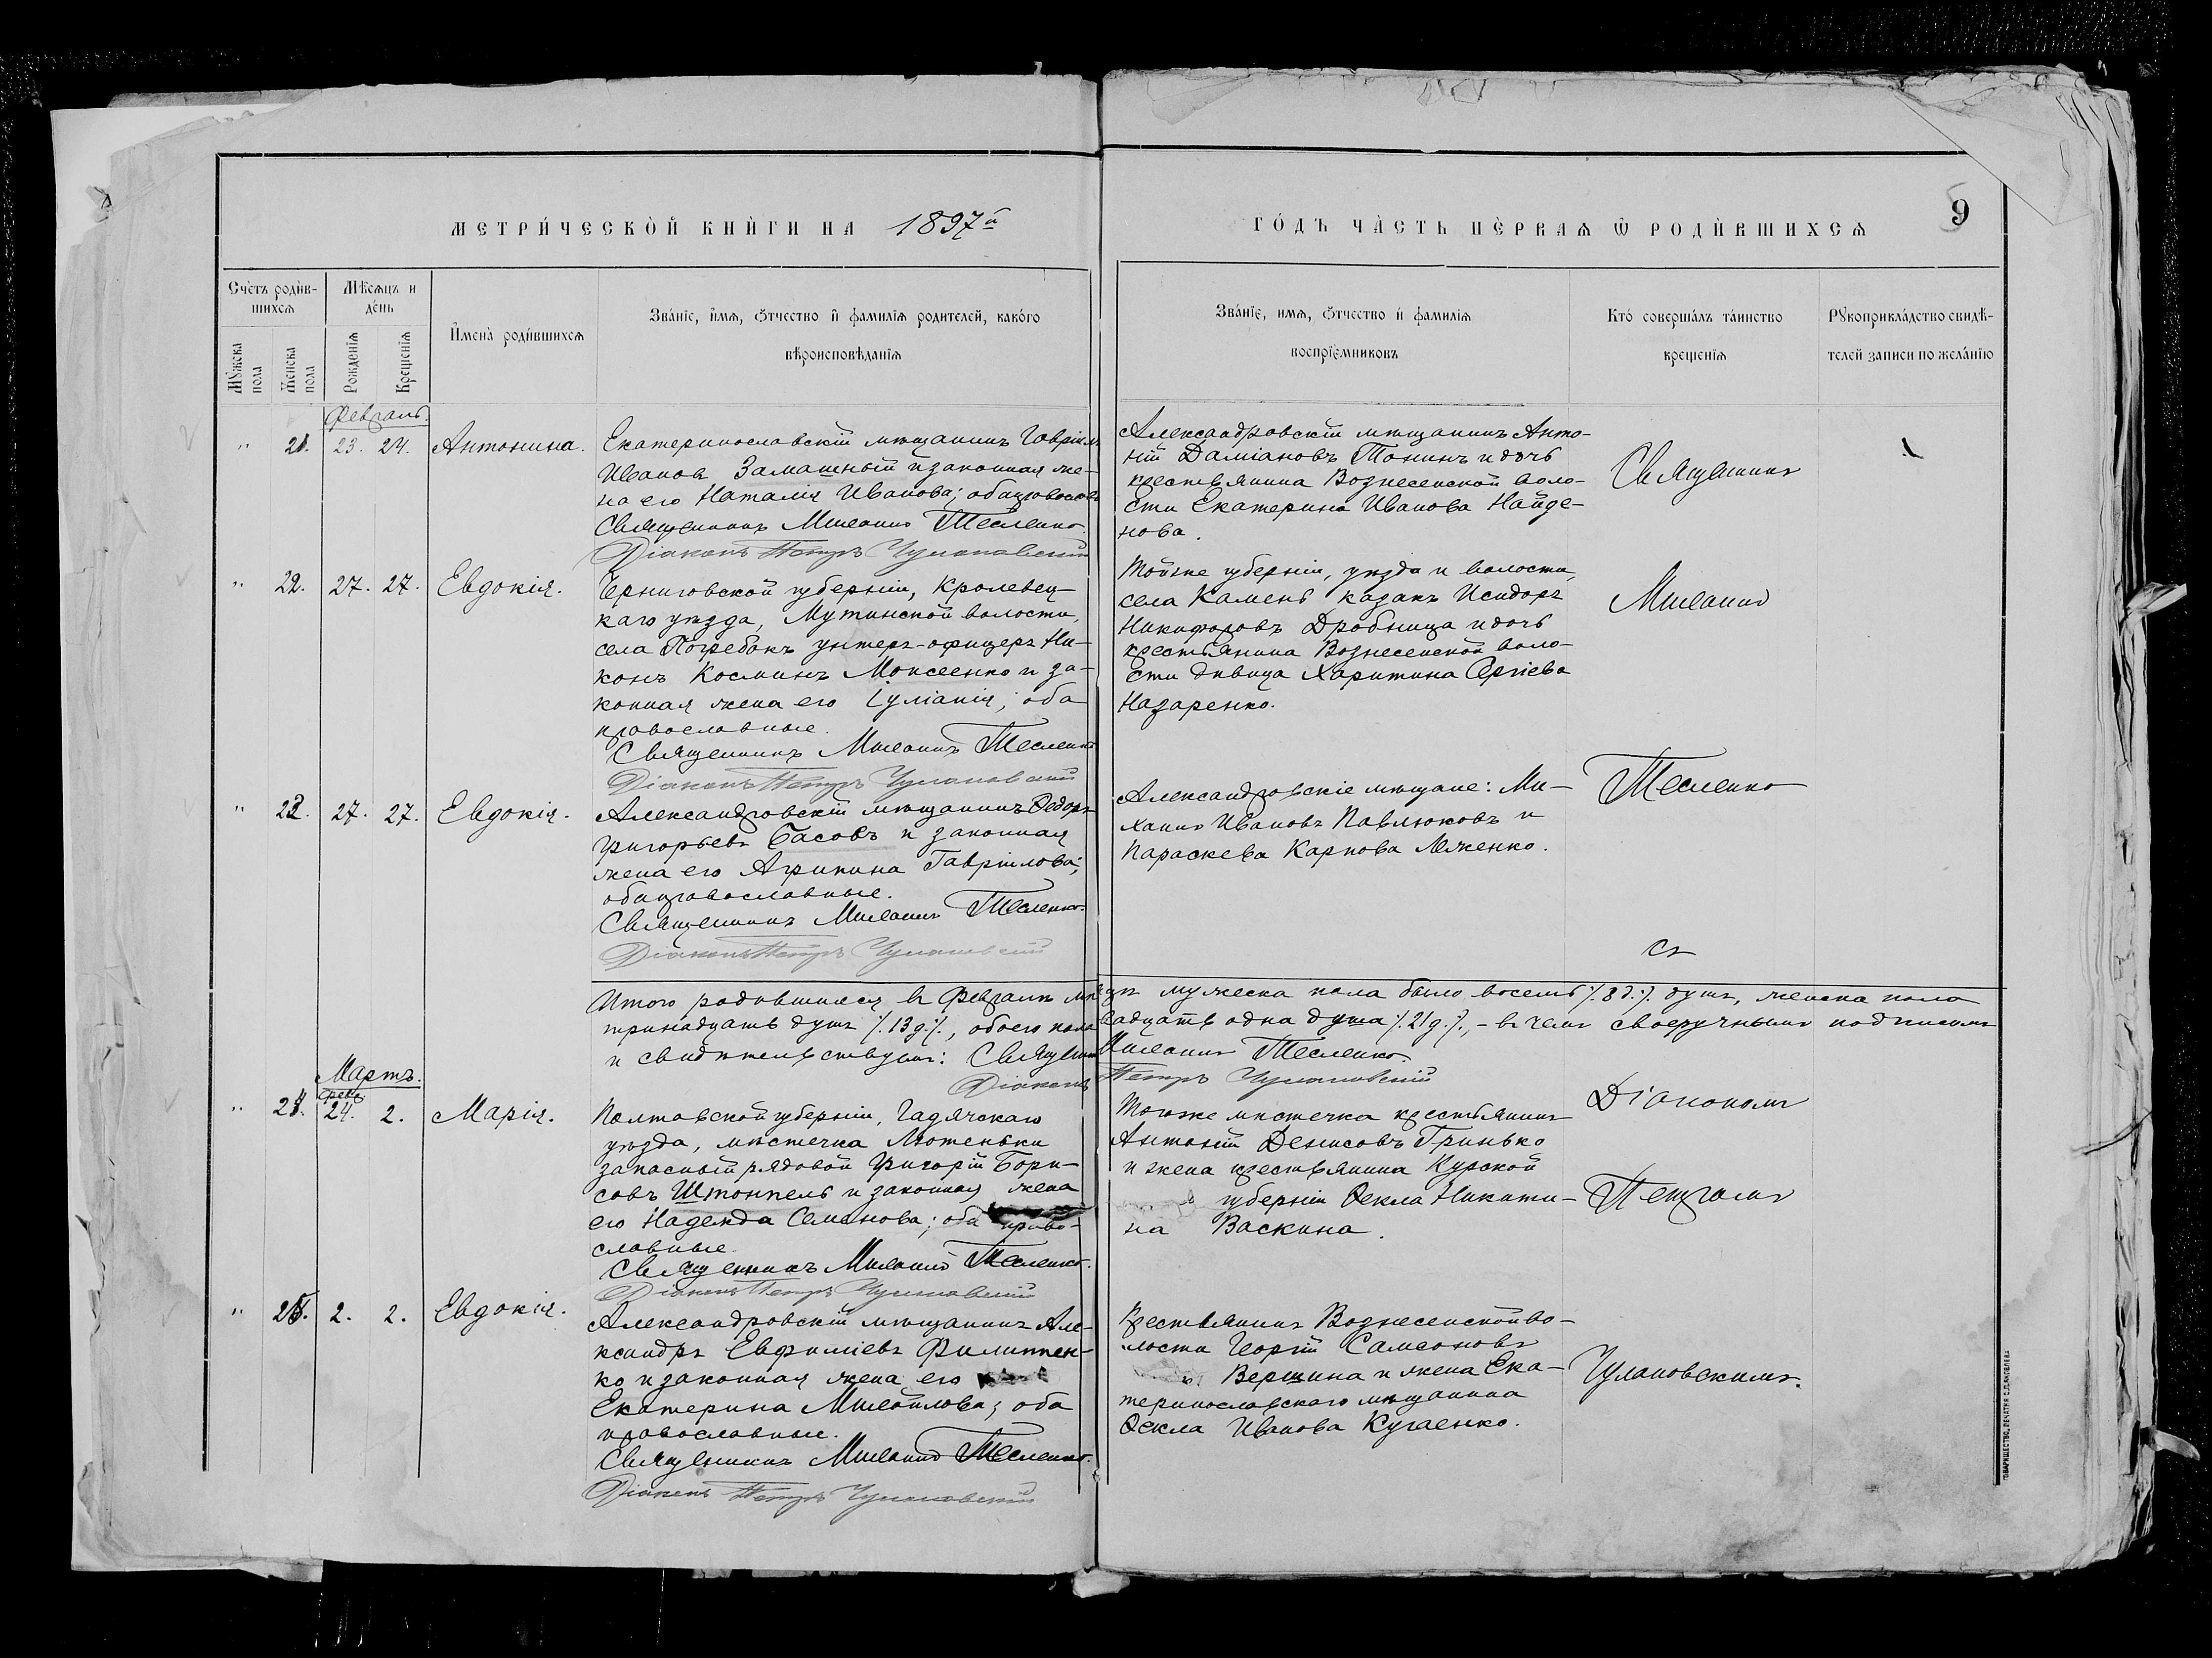 МЕТРИ́ЧЕСКОЙ КНИ́ГИ НА 1897й
ГО́ДЪ ЧА́СТЬ ПЕ́РВАЯ Ѿ РОДИ́ВШИХСЯ
9
Счетъ роди́в-
шихся
Мѣсяцъ и
де́нь
Мꙋжеска
пола
Женска
пола
Рожденїя
Крещенїя
И҆мена̀ роди́вшихся
Зва́нїе, и҆́мя, ѻ҆́тчество и҆ фамилїя родителей, како́го
вѣроисповѣ́данїя
Зва́нїе, имя, ѻ҆́тчество и҆ фамилїя
воспрїе́мниковъ
Кто́ соверша́лъ та́инство
крещенїя
Рꙋкоприкла́дство свидѣ́-
телей записи по жела́нїю
Февраль.
" 21. 23. 24. Антонина.
Екатеринославскій мѣщанинъ Гавріилъ
Ивановъ Замашный и законная же-
на его Наталія Иванова; оба православ.
Священникъ Михаилъ Тесленко.
Діаконъ Петръ Чулановскій
Александровскій мѣщанинъ Анто-
ній Даміановъ Тонинъ и дочь
крестьянина Вознесенской воло-
сти Екатерина Иванова Найде-
нова.
Священникъ
" 22. 27. 27. Евдокія.
Черниговской губерніи, Кролевец-
каго уѣзда, Мутинской волости,
села Погребокъ унтеръ-офицеръ Ни-
конъ Косминъ Моисеенко и за-
конная жена его Іуліанія; оба
православные.
Священникъ Михаилъ Тесленко
Діаконъ Петръ Чулановскій
Той же губерніи, уѣзда и волости,
села Камень казакъ Исидоръ
Никифоровъ Дробница и дочь
крестьянина Вознесенской воло-
сти дѣвица Харитина Сергіева
Назаренко.
Михаилъ
" 23. 27. 27. Евдокія.
Александровскій мѣщанинъ Ѳедоръ
Григорьевъ Басовъ и законная
жена его Агрипина Гавріилова;
оба православные.
Священникъ Михаилъ Тесленко.
Діаконъ Петръ Чулановскій
Александровскіе мѣщане: Ми-
хаилъ Ивановъ Павлюковъ и
Параскева Карпова Ляженко.
Тесленко
съ
Итого родившихся въ Февралѣ мѣсяцѣ мужеска пола было восемь /.8 д./. душъ, женска пола
тринадцать душъ /.13 д./., обоего пола двадцать одна душа /.21 д./., – въ чемъ своеручнымъ подписомъ
и свидѣтельствуемъ: Священникъ Михаилъ Тесленко.
Діаконъ Петръ Чулановскій
Мартъ.
Февр.
" 24. 24. 2. Марія.
Полтавской губерніи, Гадячскаго
уѣзда, мѣстечка Лютеньки
запасный рядовой Григорій Бори-
совъ Штоппель и законная жена
его Надежда Семенова; оба право-
славные.
Священникъ Михаилъ Тесленко.
Діаконъ Петръ Чулановскій
Того же мѣстечка крестьянинъ
Антоній Денисовъ Гринько
и жена крестьянина Курской
губерніи Ѳекла Никити-
на Васкина.
Діакономъ
Петромъ
" 25. 2. 2. Евдокія.
Александровскій мѣщанинъ Але-
ксандръ Евфиміевъ Филиппен-
ко и законная жена его
Екатерина Михайлова; оба
православные.
Священникъ Михаилъ Тесленко.
Діаконъ Петръ Чулановскій
Крестьянинъ Вознесенской во-
лости Георгій Самсоновъ
Вершина и жена Ека-
теринославскаго мѣщанина
Ѳекла Иванова Кугаенко.
Чулановскимъ.